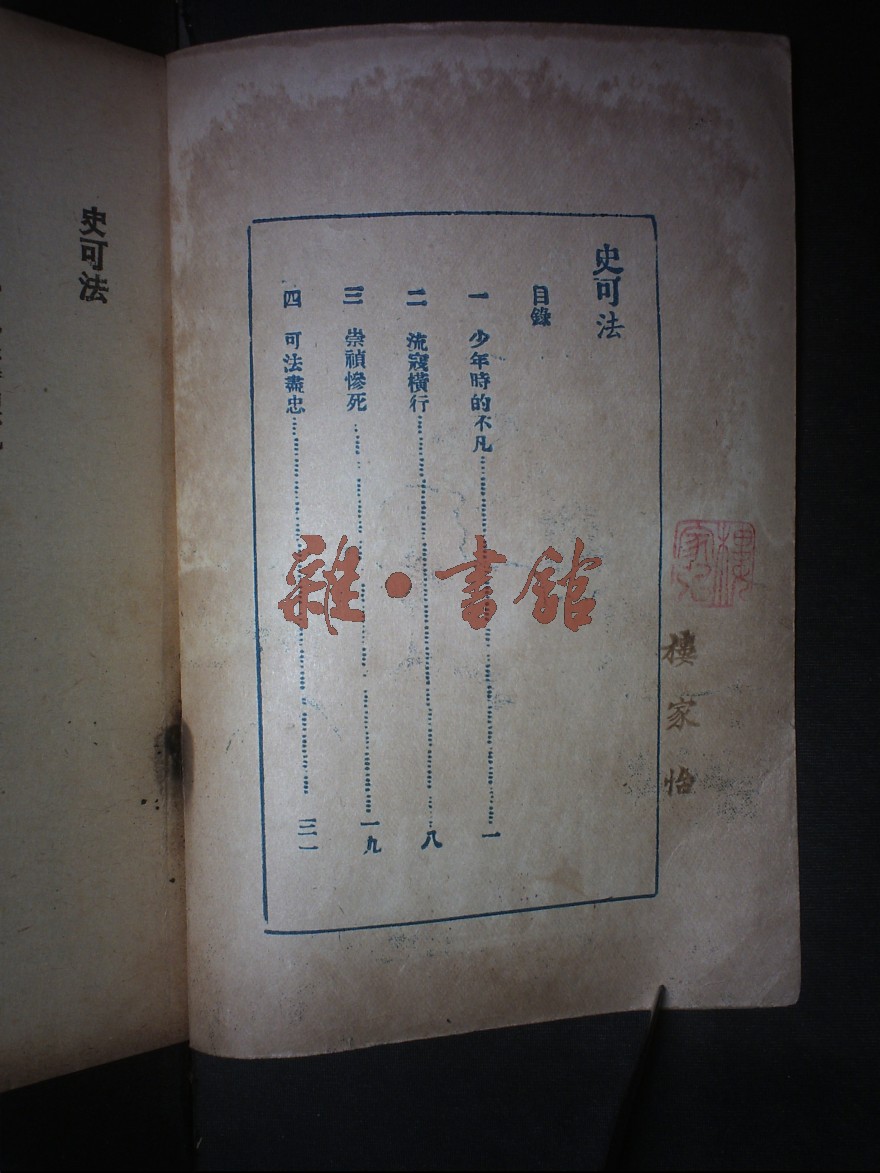 史可法
目錄
一 少年時的不凡 一
二 流寇橫行 八
三 崇禎慘死 一九
四 可法盡忠 三一
雜·書館
樓家怡
史可法